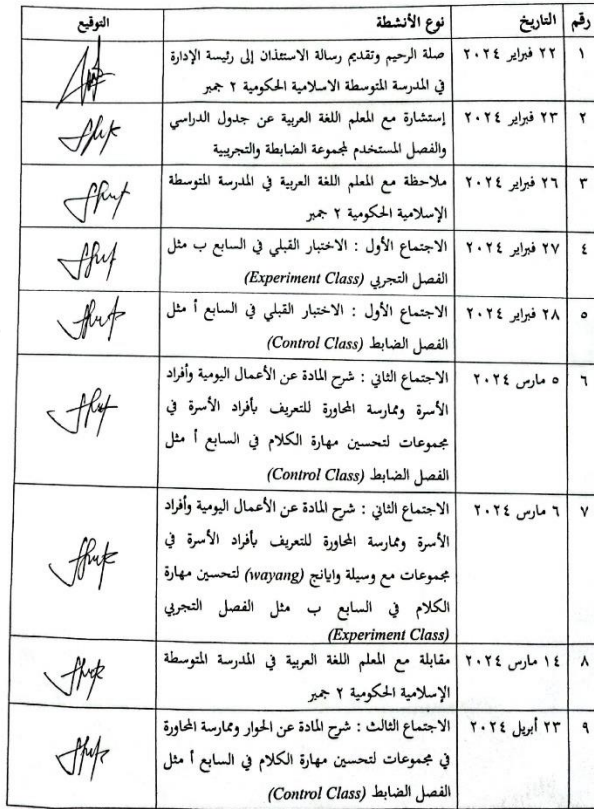 رقم التاريخ نوع الأنشطة التوقيع
١ ٢٢ فبراير ٢٠٢٤ صلة الرحيم وتقديم رسالة الاستئذان إلى رئيسة الإدارة
في المدرسة المتوسطة الاسلامية الحكومية ٢ جمبر
٢ ٢٣ فبراير ٢٠٢٤ إستشارة مع المعلم اللغة العربية عن جدول الدراسي
والفصل المستخدم لمجموعة الضابطة والتجريبية
٣ ٢٦ فبراير ٢٠٢٤ ملاحظة مع المعلم اللغة العربية في المدرسة المتوسطة
الإسلامية الحكومية ٢ جمبر
٤ ٢٧ فبراير ٢٠٢٤ الاجتماع الأول : الاختبار القبلي في السابع ب مثل
الفصل التجربي (Experiment Class)
٥ ٢٨ فبراير ٢٠٢٤ الاجتماع الأول : الاختبار القبلي في السابع أ مثل
الفصل الضابط (Control Class)
٦ ٥ مارس ٢٠٢٤ الاجتماع الثاني : شرح المادة عن الأعمال اليومية وأفراد
الأسرة وممارسة المحاورة للتعريف بأفراد الأسرة في
مجموعات لتحسين مهارة الكلام في السابع أ مثل
الفصل الضابط (Control Class)
٧ ٦ مارس ٢٠٢٤ الاجتماع الثاني : شرح المادة عن الأعمال اليومية وأفراد
الأسرة وممارسة المحاورة للتعريف بأفراد الأسرة في
مجموعات مع وسيلة وايانج (wayang) لتحسين مهارة
الكلام في السابع ب مثل الفصل التجربي
(Experiment Class)
٨ ١٤ مارس ٢٠٢٤ مقابلة مع المعلم اللغة العربية في المدرسة المتوسطة
الإسلامية الحكومية ٢ جمبر
٩ ٢٣ أبريل ٢٠٢٤ الاجتماع الثالث : شرح المادة عن الحوار وممارسة المحاورة
في مجموعات لتحسين مهارة الكلام في السابع أ مثل
الفصل الضابط (Control Class)